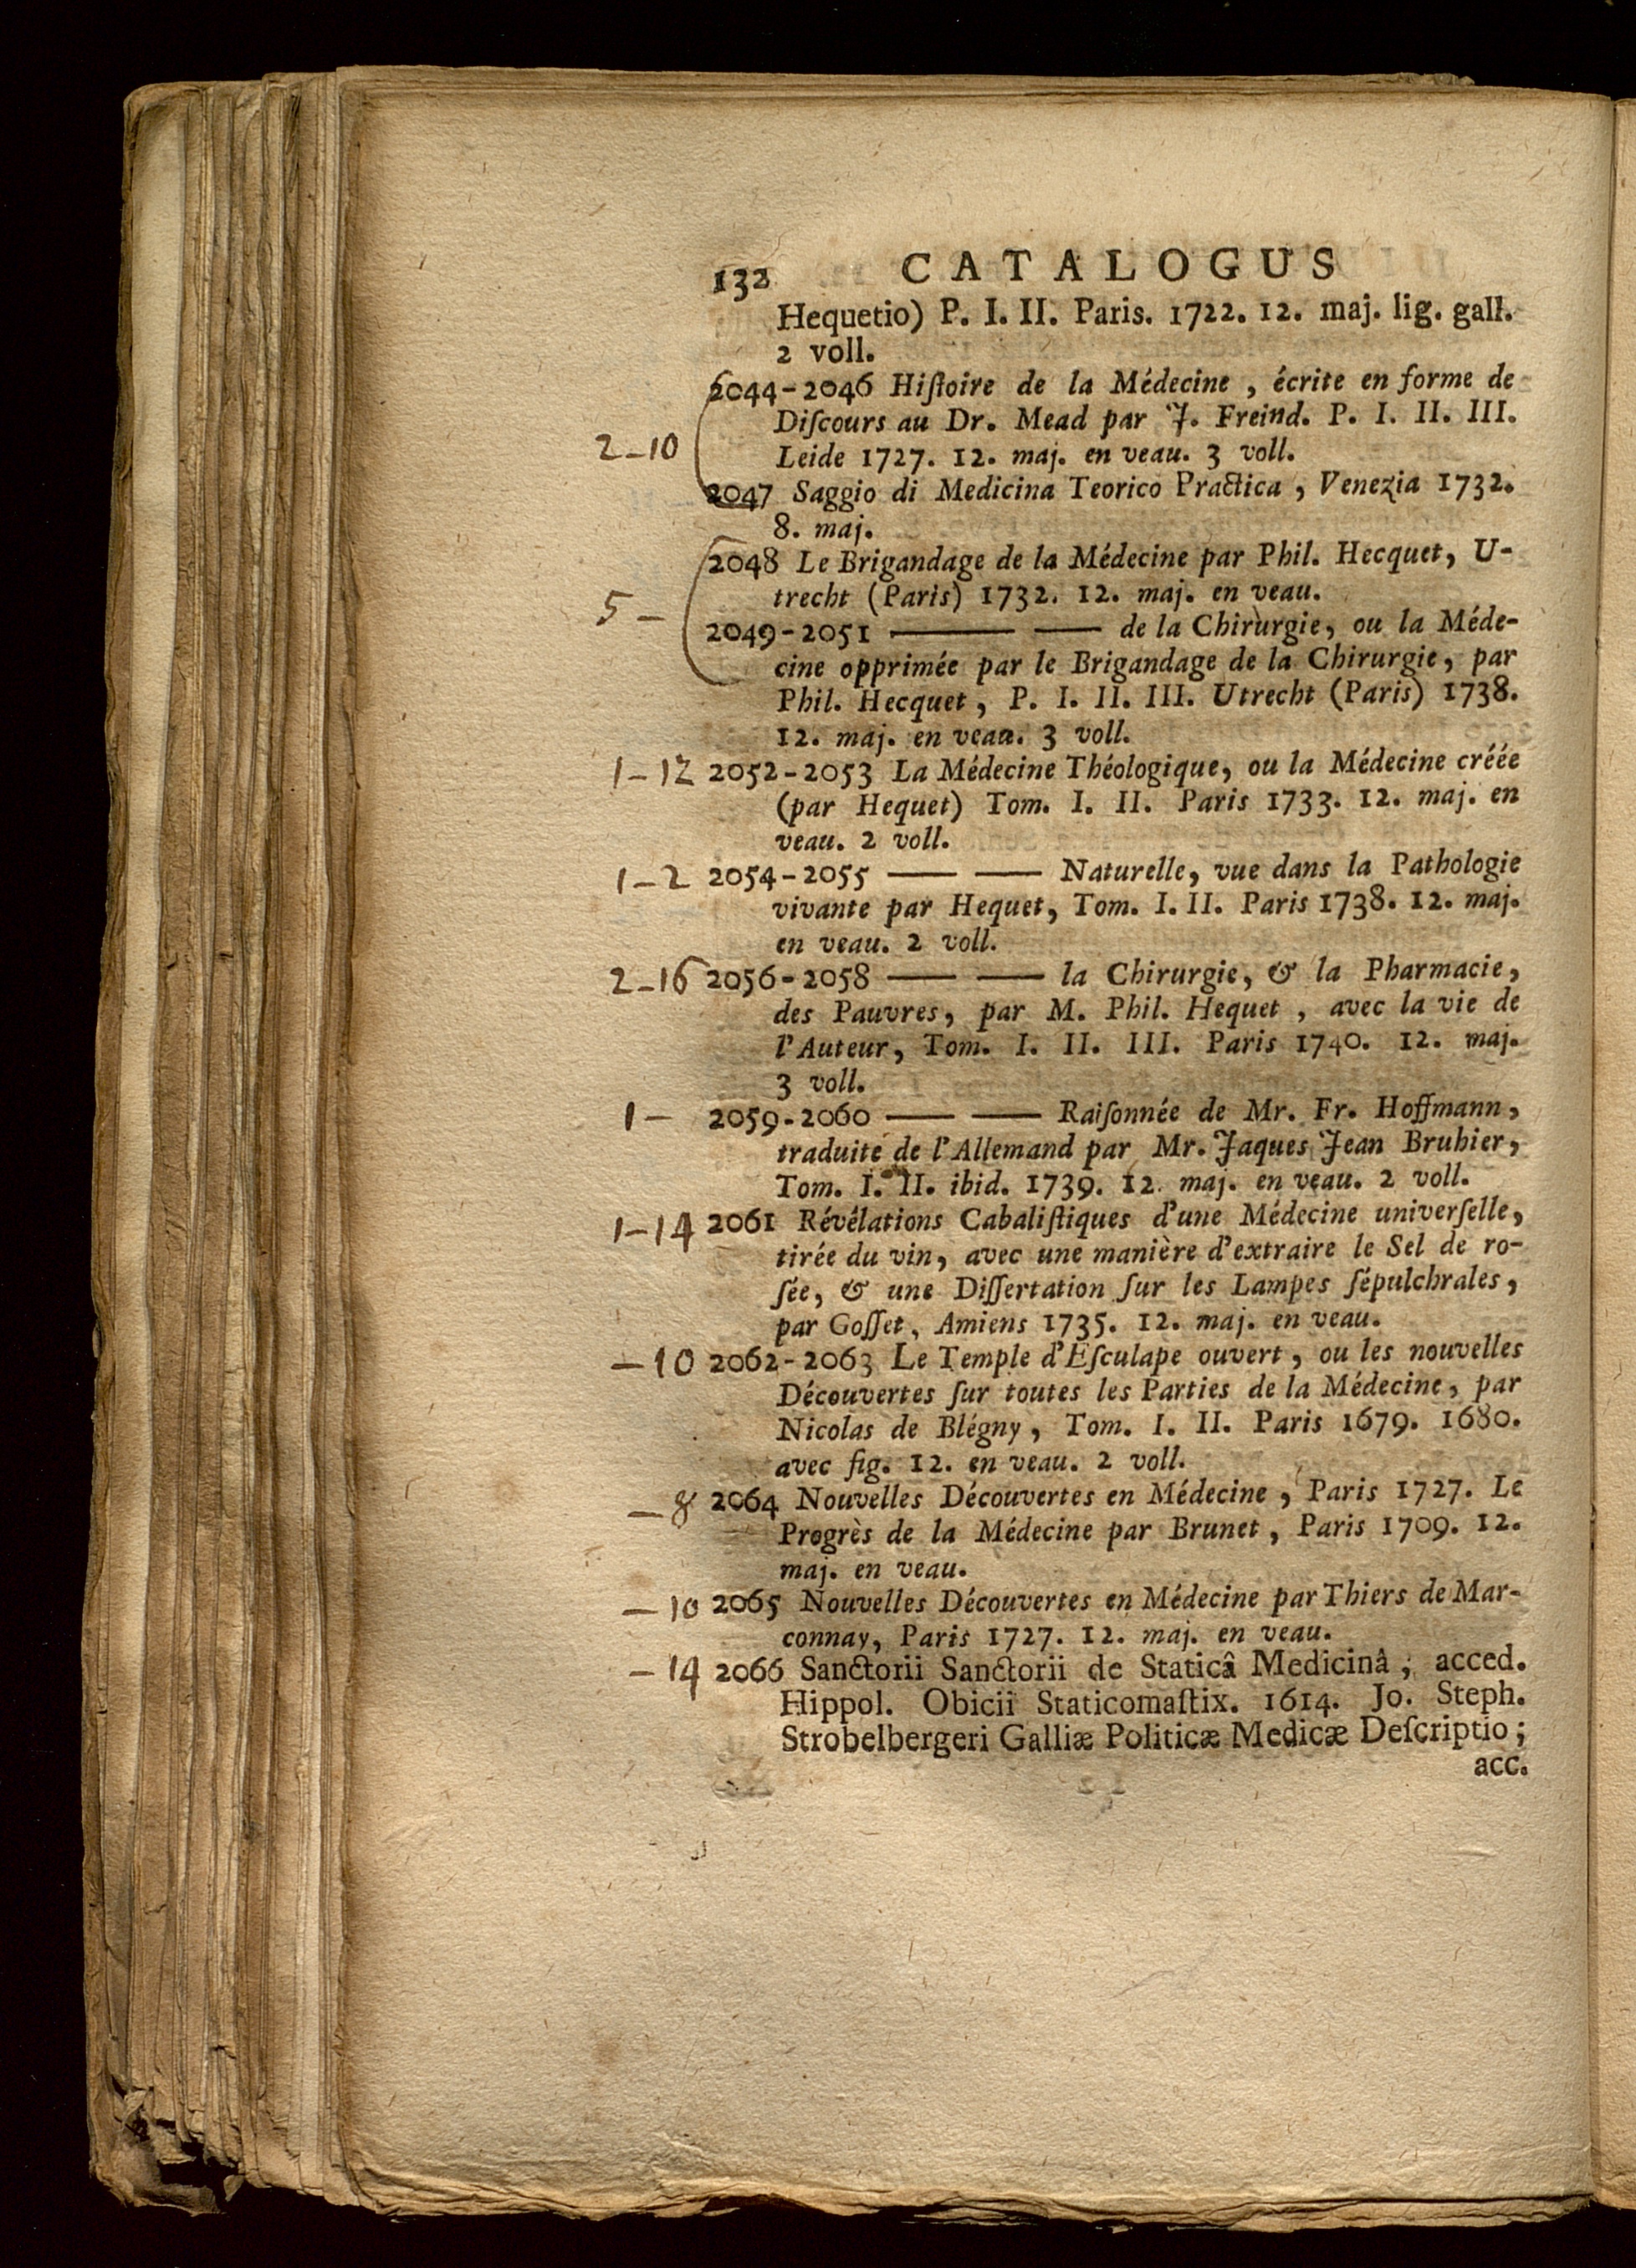 132 CATALOGUS
Hequetio) P. I. II. Paris. 1722. 12. maj. lig. gall.
2 voll.
2044-2046 Hiſtoire de la Médecine, écrite en forme de
Diſcours au Dr. Mead par J. Freind. P. I. II. III.
2-10 Leide 1727. 12. maj. en veau. 3 voll.
2047 Saggio di Medicina Teorico Practica, Venezia 1732.
8. maj.
2048 Le Brigandage de la Médecine par Phil. Hecquet, U-
5 - trecht (Paris) 1732. 12. maj. en veau.
2049-2051 ——— —— de la Chirurgie, ou la Méde-
cine opprimée par le Brigandage de la Chirurgie, par
Phil. Hecquet, P. I. II. III. Utrecht (Paris) 1738.
12. maj. en veau. 3 voll.
1-12 2052-2053 La Médecine Théologique, ou la Médecine créée
(par Hequet) Tom. I. II. Paris 1733. 12. maj. en
veau. 2 voll.
1-2 2054-2055 —— —— Naturelle, vue dans la Pathologie
vivante par Hequet, Tom. I. II. Paris 1738. 12. maj.
en veau. 2 voll.
2-16 2056-2058 —— —— la Chirurgie, & la Pharmacie,
des Pauvres, par M. Phil. Hequet, avec la vie de
l'Auteur, Tom. I. II. III. Paris 1740. 12. maj.
3 voll.
1 - 2059-2060 —— —— Raiſonnée de Mr. Fr. Hoffmann,
traduite de l'Allemand par Mr. Jaques Jean Bruhier,
Tom. I. II. ibid. 1739. 12. maj. en veau. 2 voll.
1-14 2061 Révélations Cabaliſtiques d'une Médecine univerſelle,
tirée du vin, avec une manière d'extraire le Sel de ro-
ſée, & une Diſſertation ſur les Lampes ſépulchrales,
par Goſſet, Amiens 1735. 12. maj. en veau.
-10 2062-2063 Le Temple d'Eſculape ouvert, ou les nouvelles
Découvertes ſur toutes les Parties de la Médecine, par
Nicolas de Blégny, Tom. I. II. Paris 1679. 1680.
avec fig. 12. en veau. 2 voll.
-8 2064 Nouvelles Découvertes en Médecine, Paris 1727. Le
Progrès de la Médecine par Brunet, Paris 1709. 12.
maj. en veau.
-10 2065 Nouvelles Découvertes en Médecine par Thiers de Mar-
connay, Paris 1727. 12. maj. en veau.
-14 2066 Sanctorii Sanctorii de Staticâ Medicinâ; acced.
Hippol. Obicii Staticomaſtix. 1614. Jo. Steph.
Strobelbergeri Galliæ Politicæ Medicæ Deſcriptio;
acc.